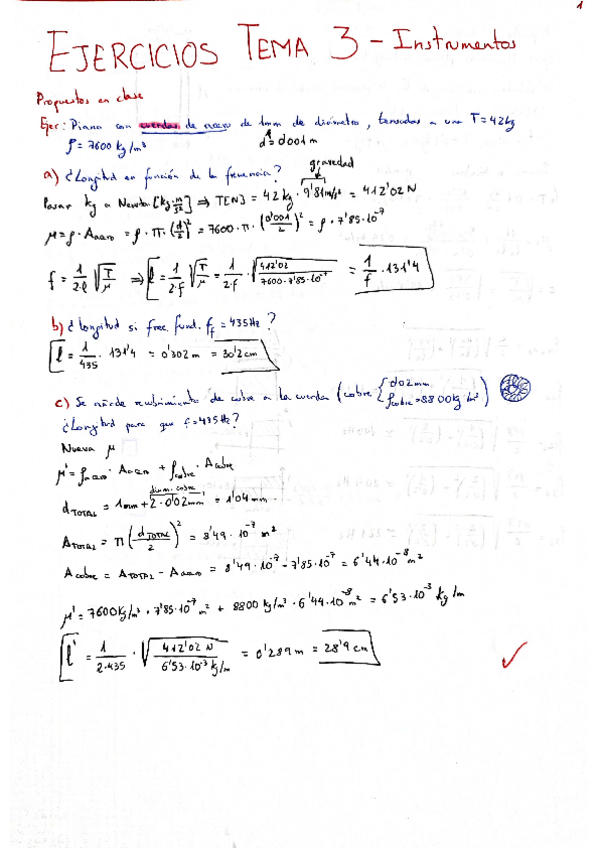 1
EJERCICIOS TEMA 3 - Instrumentos
Propuestos en clase
Ejer: Piano con cuerdas de acero de 1mm de diámetro, tensadas a una T = 42kg
ρ = 7600 kg/m³ d = 0'001 m
a) ¿Longitud en función de la frecuencia? gravedad
Pasar kg a Newton [kg·m/s²] ⇒ T[N] = 42 kg · 9'81 m/s² = 412'02 N
μ = ρ · Aacero = ρ · π · (d/2)² = 7600 · π · (0'001/2)² = ρ · 7'85·10⁻⁷
f = 1/2·l √T/μ ⇒ l = 1/2·f √T/μ = 1/2·f · √412'02/7600·7'85·10⁻⁷ = 1/f · 131'4
b) ¿Longitud si frec. fund. f_f = 435Hz?
l = 1/435 · 131'4 = 0'302 m = 30'2 cm
c) Se añade recubrimiento de cobre a la cuerda (cobre { 0'02 mm ρcobre = 8800 kg/m³ )
¿Longitud para que f = 435 Hz?
Nueva μ
μ' = ρacero · Aacero + ρcobre · Acobre
diam. cobre
dTOTAL = 1mm + 2·0'02mm = 1'04 mm
ATOTAL = π (dTOTAL/2)² = 8'49 · 10⁻⁷ m²
Acobre = ATOTAL - Aacero = 8'49·10⁻⁷ - 7'85·10⁻⁷ = 6'44·10⁻⁸ m²
μ' = 7600 kg/m³ · 7'85·10⁻⁷ m² + 8800 kg/m³ · 6'44·10⁻⁸ m² = 6'53·10⁻³ kg/m
l' = 1/2·435 · √412'02 N/6'53·10⁻³ kg/m = 0'289 m = 28'9 cm